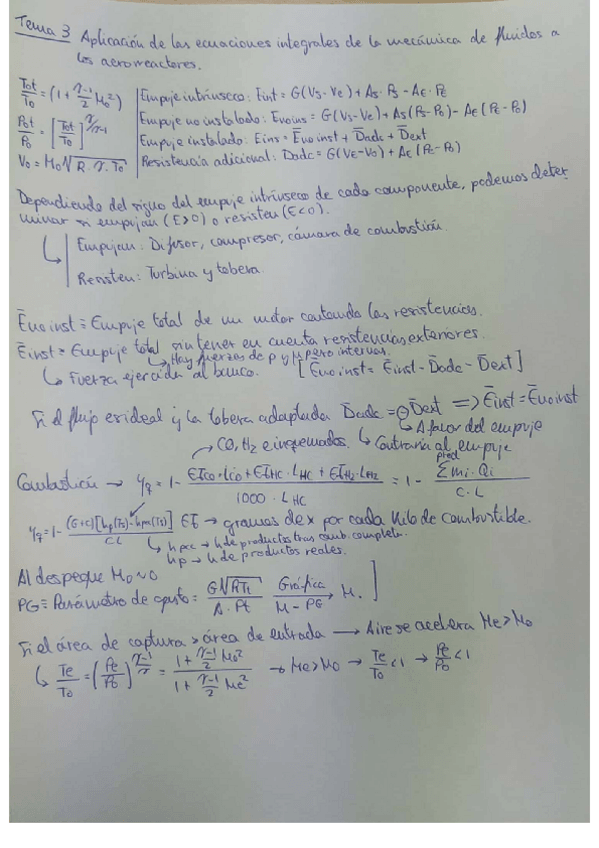 Tema 3 Aplicación de las ecuaciones integrales de la mecánica de fluidos a
los aerorreactores.
Tot/To = (1 + γ-1/2 Mo²) | Empuje intrínseco: Eint = G(Vs - Ve) + As·Ps - Ae·Pe
Pot/Po = [Tot/To]^γ/γ-1 | Empuje no instalado: Enoins = G(Vs - Ve) + As(Ps-Po) - Ae(Pe-Po)
Empuje instalado: Eins = Enoinst + Dadc + Dext
Vo = Mo√R·γ·To | Resistencia adicional: Dadc = G(Ve-Vo) + Ae(Pe-Po)
Dependiendo del signo del empuje intrínseco de cada componente, podemos deter
minar si empujan (E>0) o resisten (E<0).
Empujan: Difusor, compresor, cámara de combustión.
Resisten: Turbina y tobera.
Enoinst = Empuje total de un motor contando las resistencias.
Einst = Empuje total sin tener en cuenta resistencias exteriores.
Hay fuerzas de p y μ pero internas.
Fuerza ejercida al banco. [Enoinst = Einst - Dadc - Dext]
Si el flujo es ideal y la tobera adaptada Dadc = ⊖Dext => Einst = Enoinst
A favor del empuje
CO, H2 e inquemados. Contraria al empuje
Combustión → ηq = 1 - EIco·Lco + EIHC·LHC + EIH2·LH2 / 1000·LHC = 1 - Σ prod mi·Qi / C·L
ηq = 1 - (G+C)[hp(Ts) - hpcc(Ts)] / CL EI → gramos de x por cada kilo de combustible.
hpcc → h de productos tras comb. completa.
hp → h de productos reales.
Al despegue Mo ~ 0
PG ≡ Parámetro de gasto = G√RTt / A·Pt Gráfica M - PG → M. ]
Si el área de captura > área de entrada → Aire se acelera Me > Mo
Te/To = (Pe/Po)^γ-1/γ = 1 + γ-1/2 Mo² / 1 + γ-1/2 Me² → Me > Mo → Te/To < 1 → Pe/Po < 1